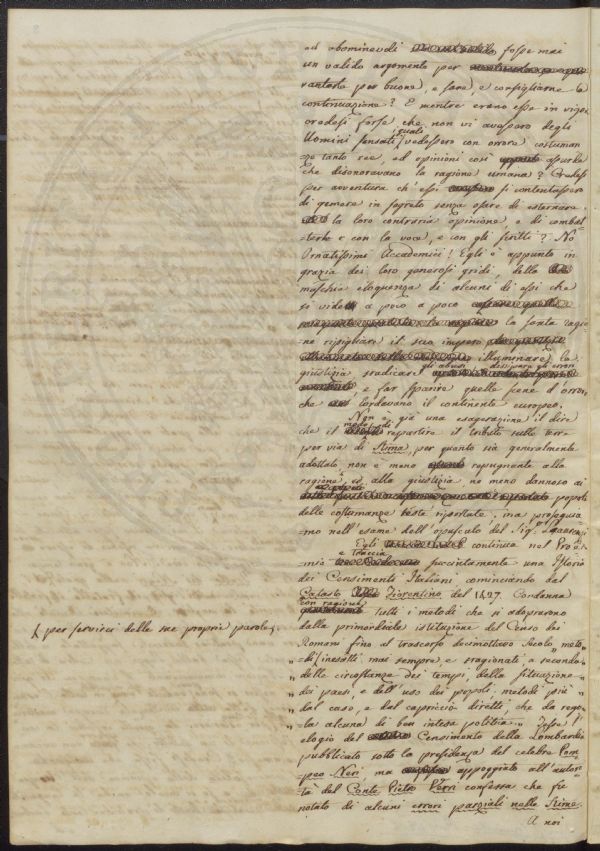 ed abominevoli fosse mai
un valido argomento per
vantarle per buone, e sane, e consigliarne la
continuazione? E mentre erano esse in vigore
credesi forse che non vi avessero degli
Uomini sensati, quali vedessero con orrore costuman
ze tanto ree, ed opinioni così assurde
che disonoravano la ragione umana? Credesi
per avventura ch'essi si contentassero
di gemere in segreto senza osare di esternare
la loro contraria opinione, e di combat
terle e con la voce, e con gli scritti? No
Ornatissimi Accademici! Egli è appunto in
grazia dei loro generosi gridi, della
maschia eloquenza di alcuni di essi che
si vide a poco a poco
la santa ragio
ne ripigliare il suo impero illuminare la
giustizia sradicare gli abusi dissipare gli errori
e far sparire quelle scene d'orrore,
che lordavano il continente europeo.
Non è già una esagerazione il dire
che il metodo di repartire il tributo sulle terre
per via di Stima, per quanto sia generalmente
adottato non è meno repugnante alla
ragione, ed alla giustizia, ne meno dannoso ai
popoli
delle costumanze teste riportate, ma proseguia
mo nell'esame dell'opuscolo del Sig.
Egli continua nel Proe
mio e traccia succintamente una Istoria
dei Censimenti Italiani cominciando dal
Catasto Fiorentino del 1427. Condanna
con ragione tutti i metodi che si adoprarono
dalla primordiale istituzione del Censo dei
Romani fino al trascorso decimottavo Secolo „ meto
( per servirci delle sue proprie parole).
„ di (inesatti mai sempre, e sragionati a seconda
„ delle circostanze dei tempi, della situazione
„ dei paesi, e dell'uso dei popoli; metodi più
„ dal caso, e dal capriccio diretti, che da rego
„ la alcuna di ben intesa politica „ Tesse l'
elogio del Censimento della Lombardia
pubblicato sotto la presidenza del celebre Pom
peo Neri, ma appoggiato all'autori
tà del Conte Pietro Verri confessa che fu
notato di alcuni errori parziali nelle Stime.
A noi